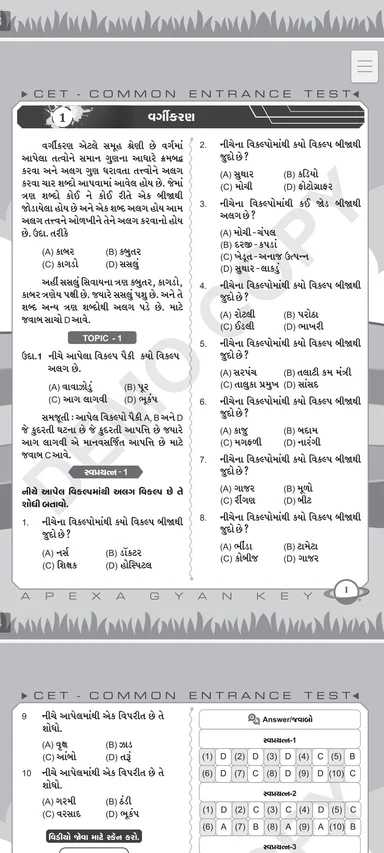 CET - COMMON ENTRANCE TEST
1 વર્ગીકરણ
વર્ગીકરણ એટલે સમૂહ શ્રેણી છે વર્ગમાં
આપેલા તત્વોને સમાન ગુણના આધારે ક્રમબદ્ધ
કરવા અને અલગ ગુણ ધરાવતા તત્વોને અલગ
કરવા ચાર શબ્દો આપવામાં આવેલ હોય છે. જેમાં
ત્રણ શબ્દો કોઈ ને કોઈ રીતે એક બીજાથી
જોડાયેલા હોય છે અને એક શબ્દ અલગ હોય આમ
અલગ તત્વને ઓળખીને તેને અલગ કરવાનો હોય
છે. ઉદા. તરીકે
(A) કાબર (B) કબુતર
(C) કાગડો (D) સસલું
અહીં સસલું સિવાયના ત્રણ કબુતર, કાગડો,
કાબર ત્રણેય પક્ષી છે. જ્યારે સસલું પશુ છે. અને તે
શબ્દ અન્ય ત્રણ શબ્દોથી અલગ પડે છે. માટે
જવાબ સાચો D આવે.
TOPIC - 1
ઉદા.1 નીચે આપેલા વિકલ્પ પૈકી કયો વિકલ્પ
અલગ છે.
(A) વાવાઝોડું (B) પૂર
(C) આગ લાગવી (D) ભૂકંપ
સમજૂતી : આપેલ વિકલ્પો પૈકી A, B અને D
જે કુદરતી ઘટના છે જે કુદરતી આપત્તિ છે જ્યારે
આગ લાગવી એ માનવસર્જિત આપત્તિ છે માટે
જવાબ C આવે.
સ્વપ્રયત્ન - 1
નીચે આપેલ વિકલ્પમાંથી અલગ વિકલ્પ છે તે
શોધી બતાવો.
1. નીચેના વિકલ્પોમાંથી કયો વિકલ્પ બીજાથી
જુદો છે ?
(A) નર્સ (B) ડૉક્ટર
(C) શિક્ષક (D) હોસ્પિટલ
2. નીચેના વિકલ્પોમાંથી કયો વિકલ્પ બીજાથી
જુદો છે ?
(A) સુથાર (B) કડિયો
(C) મોચી (D) ફોટોગ્રાફર
3. નીચેના વિકલ્પોમાંથી કઈ જોડ બીજાથી
અલગ છે ?
(A) મોચી - ચંપલ
(B) દરજી - કપડાં
(C) ખેડૂત - અનાજ ઉત્પન્ન
(D) સુથાર - લાકડું
4. નીચેના વિકલ્પોમાંથી કયો વિકલ્પ બીજાથી
જુદો છે ?
(A) રોટલી (B) પરોઠા
(C) ઈડલી (D) ભાખરી
5. નીચેના વિકલ્પોમાંથી કયો વિકલ્પ બીજાથી
જુદો છે ?
(A) સરપંચ (B) તલાટી કમ મંત્રી
(C) તાલુકા પ્રમુખ (D) સાંસદ
6. નીચેના વિકલ્પોમાંથી કયો વિકલ્પ બીજાથી
જુદો છે ?
(A) કાજુ (B) બદામ
(C) મગફળી (D) નારંગી
7. નીચેના વિકલ્પોમાંથી કયો વિકલ્પ બીજાથી
જુદો છે ?
(A) ગાજર (B) મૂળો
(C) રીંગણ (D) બીટ
8. નીચેના વિકલ્પોમાંથી કયો વિકલ્પ બીજાથી
જુદો છે ?
(A) ભીંડા (B) ટામેટા
(C) કોબીજ (D) ગાજર
DEMO COPY
APEXA GYAN KEY 1
CET - COMMON ENTRANCE TEST
9 નીચે આપેલમાંથી એક વિપરીત છે તે
શોધો.
(A) વૃક્ષ (B) ઝાડ
(C) આંબો (D) તરૂં
10 નીચે આપેલમાંથી એક વિપરીત છે તે
શોધો.
(A) ગરમી (B) ઠંડી
(C) વરસાદ (D) ભૂકંપ
વિડીયો જોવા માટે સ્કેન કરો.
Answer/જવાબો
સ્વપ્રયત્ન-1
(1) D (2) D (3) D (4) C (5) B
(6) D (7) C (8) D (9) D (10) C
સ્વપ્રયત્ન-2
(1) D (2) C (3) C (4) D (5) C
(6) A (7) B (8) A (9) A (10) B
સ્વપ્રયત્ન-3